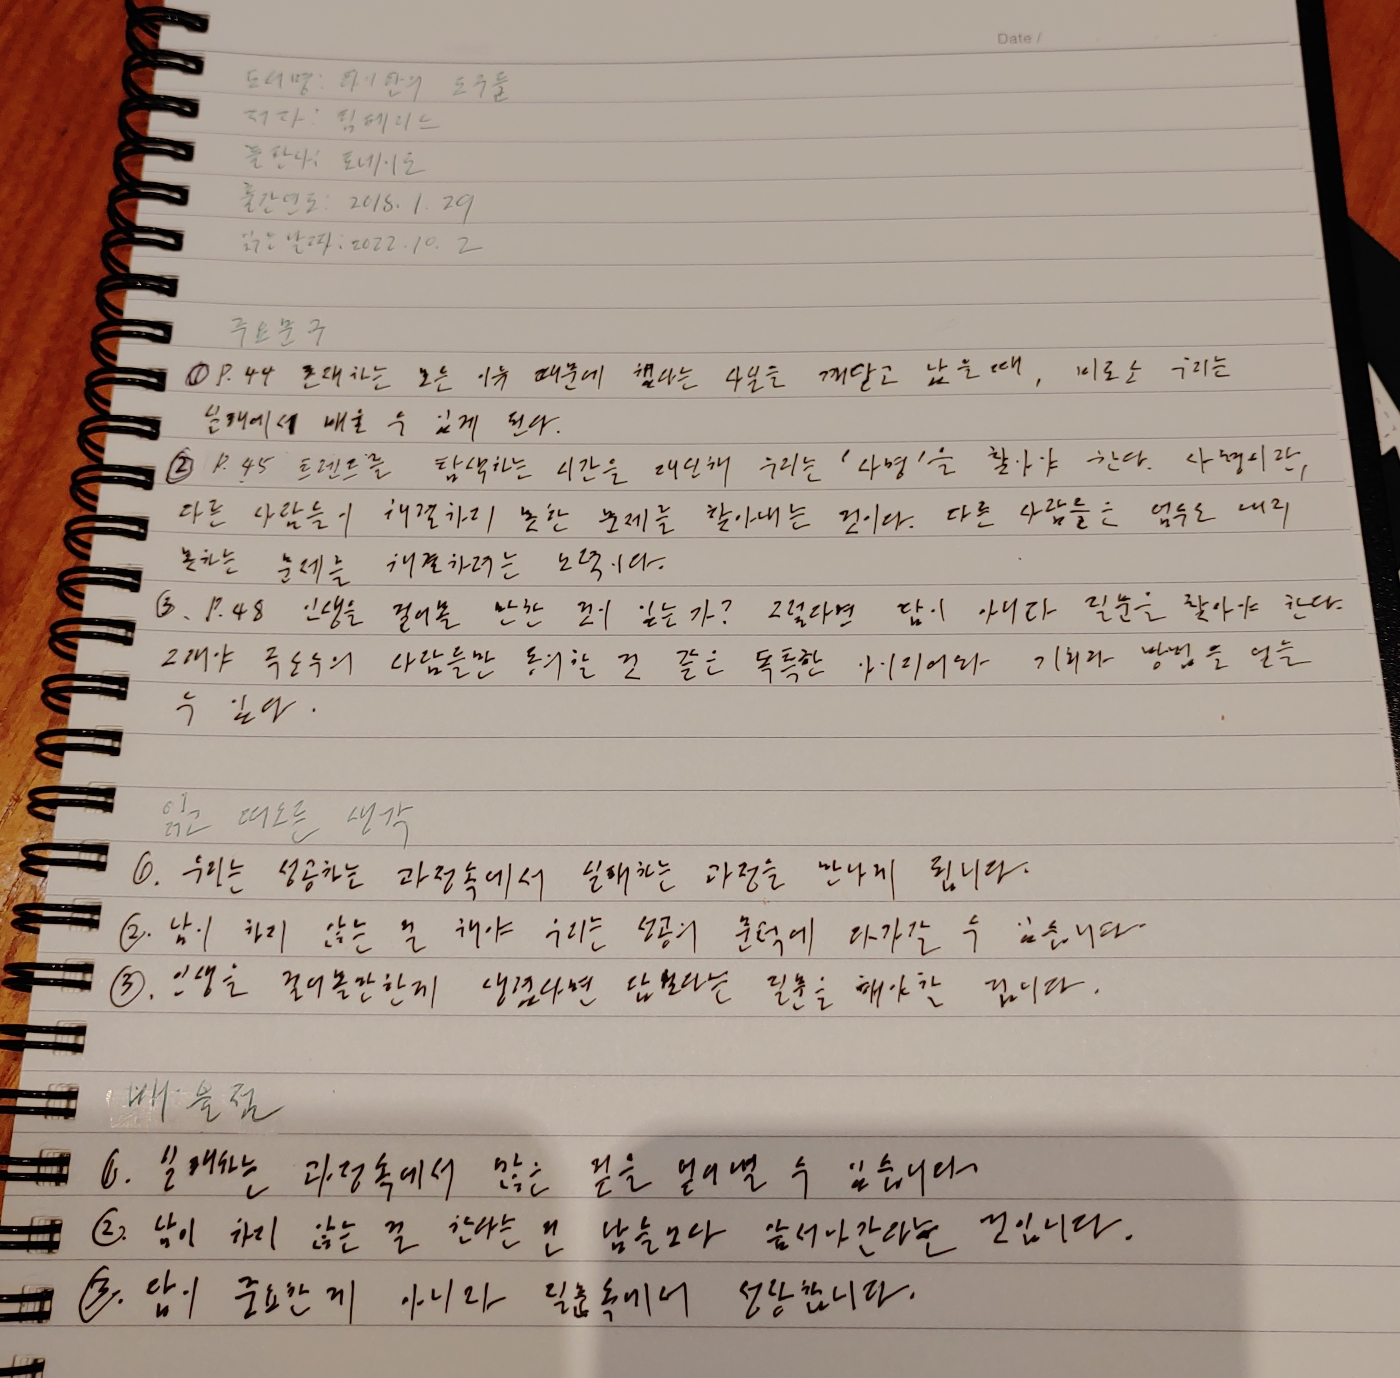 Date /
도서명: 타이탄의 도구들
저자: 팀페리스
출판사: 토네이도
출간연도: 2018. 1. 29
읽은날짜: 2022. 10. 2
주요문구
① P.44 존재하는 모든 이유 때문에 했다는 사실을 깨닫고 났을때, 비로소 우리는
실패에서 배울 수 있게 된다.
② P.45 트렌드를 탐색하는 시간을 대신해 우리는 '사명'을 찾아야 한다. 사명이란,
다른 사람들이 해결하지 못한 문제를 찾아내는 것이다. 다른 사람들은 엄두도 내지
못하는 문제를 해결하려는 노력이다.
③. P.48 인생을 걸어볼 만한 것이 있는가? 그렇다면 답이 아니라 질문을 찾아야 한다.
그래야 극소수의 사람들만 동의할 것 같은 독특한 아이디어와 기회와 방법을 얻을
수 있다.
읽고 떠오른 생각
①. 우리는 성공하는 과정속에서 실패하는 과정을 만나게 됩니다.
②. 남이 하지 않는 걸 해야 우리는 성공의 문턱에 다가갈 수 있습니다.
③. 인생을 걸어볼만한게 생겼다면 답보다는 질문을 해야할 겁니다.
배울점
①. 실패하는 과정속에서 많은 걸을 얻어낼 수 있습니다
②. 남이 하지 않는 걸 한다는 건 남들보다 앞서나간다는 것입니다.
③. 답이 중요한게 아니라 질문속에서 성장합니다.